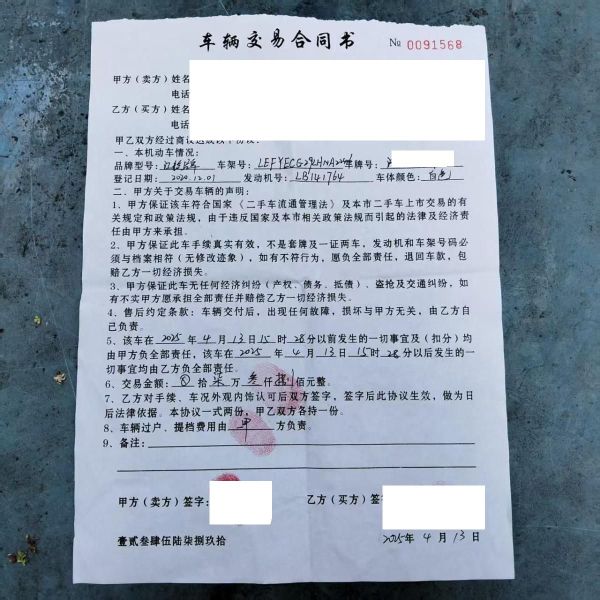 车辆交易合同书 № 0091568
甲方（卖方）姓名
电话
乙方（买方）姓名
电话
甲乙双方经过商议达成以下协议：
一、本机动车情况：
品牌型号： 车架号：LEFYECG29LHNA 牌号：
登记日期：2020.12.01 发动机号：LB141764 车体颜色：白色
二、甲方关于交易车辆的声明：
1、甲方保证该车符合国家《二手车流通管理法》及本市二手车上市交易的有
关规定和政策法规，由于违反国家及本市相关政策法规而引起的法律及经济责
任由甲方来承担。
2、甲方保证此车手续真实有效，不是套牌及一证两车，发动机和车架号码必
须与档案相符（无修改迹象），如有不符行为，愿负全部责任，退回车款，包
赔乙方一切经济损失。
3、甲方保证此车无任何经济纠纷（产权、债务、抵债）、盗抢及交通纠纷，如
有不实甲方愿承担全部责任并赔偿乙方一切经济损失。
4、售后约定条款：车辆交付后，出现任何故障，损坏与甲方无关，由乙方自
己负责。
5、该车在 2025 年 4 月 13 日 15 时 28 分以前发生的一切事宜及（扣分）均
由甲方负全部责任，该车在 2025 年 4 月 13 日 15 时 28 分以后发生的一
切事宜均由乙方负全部责任。
6、交易金额： 拾 柒 万 叁 仟 捌 佰元整。
7、乙方对手续、车况外观内饰认可后双方签字，签字后此协议生效，做为日
后法律依据。本协议一式两份，甲乙双方各持一份。
8、车辆过户、提档费用由 甲 方负责。
9、备注：
甲方（卖方）签字： 乙方（买方）签
壹贰叁肆伍陆柒捌玖拾 2025年 4 月 13 日